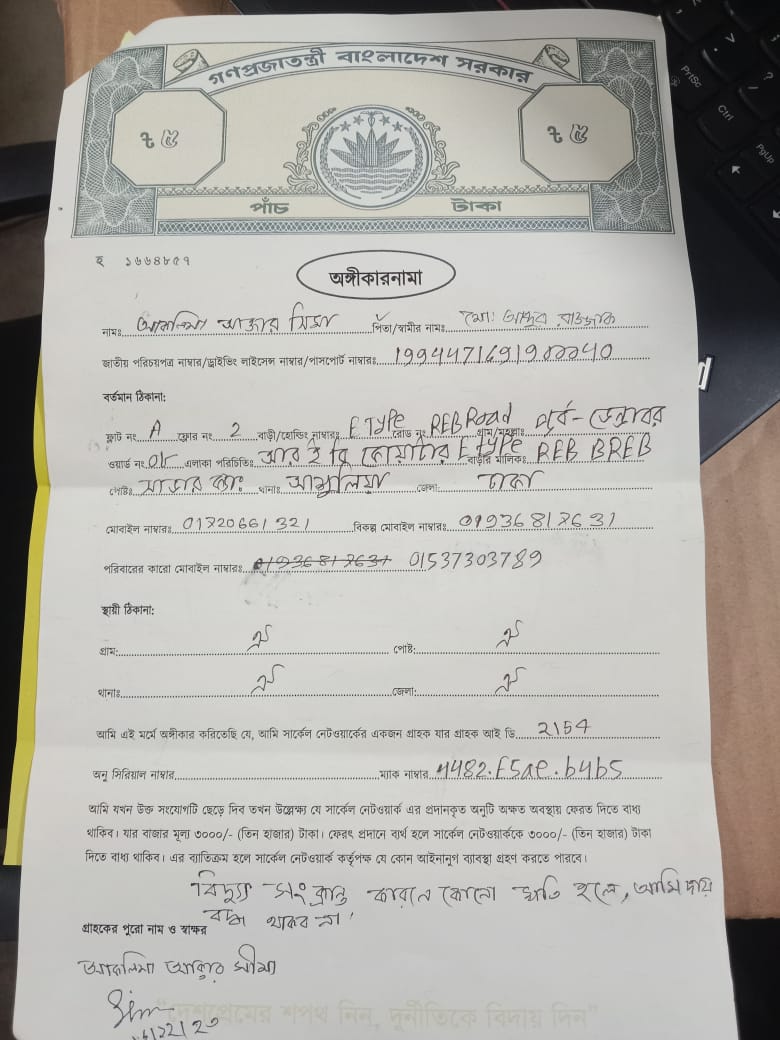 গণপ্রজাতন্ত্রী বাংলাদেশ সরকার
৳ ৫ ৳ ৫
পাঁচ টাকা
হ ১৬৬৪৮৫৭
অঙ্গীকারনামা
নামঃ আকলিমা আক্তার সিমা পিতা/স্বামীর নামঃ মোঃ আব্দুর রাজ্জাক
জাতীয় পরিচয়পত্র নাম্বার/ড্রাইভিং লাইসেন্স নাম্বার/পাসপোর্ট নাম্বারঃ
বর্তমান ঠিকানা:
ফ্লাট নং A ফ্লোর নং 2 বাড়ী/হোল্ডিং নাম্বারঃ E Type রোড নং REB Road গ্রাম/মহল্লাঃ পূর্ব-ডেন্ডাবর
ওয়ার্ড নং এলাকা পরিচিতিঃ আর ই বি কোয়াটার E type বাড়ীর মালিকঃ REB BREB
পোষ্টঃ সাভার ক্যাঃ থানাঃ আশুলিয়া জেলা: ঢাকা
মোবাইল নাম্বারঃ বিকল্প মোবাইল নাম্বারঃ
পরিবারের কারো মোবাইল নাম্বারঃ 01537303789
স্থায়ী ঠিকানা:
গ্রাম: ঐ পোষ্ট: ঐ
থানাঃ ঐ জেলা: ঐ
আমি এই মর্মে অঙ্গীকার করিতেছি যে, আমি সার্কেল নেটওয়ার্কের একজন গ্রাহক যার গ্রাহক আই ডি 2154
অনু সিরিয়াল নাম্বার ম্যাক নাম্বার 4482.F5ae.b4b5
আমি যখন উক্ত সংযোগটি ছেড়ে দিব তখন উল্লেক্ষ্য যে সার্কেল নেটওয়ার্ক এর প্রদানকৃত অনুটি অক্ষত অবস্থায় ফেরত দিতে বাধ্য
থাকিব। যার বাজার মূল্য ৩০০০/- (তিন হাজার) টাকা। ফেরৎ প্রদানে ব্যর্থ হলে সার্কেল নেটওয়ার্ককে ৩০০০/- (তিন হাজার) টাকা
দিতে বাধ্য থাকিব। এর ব্যতিক্রম হলে সার্কেল নেটওয়ার্ক কর্তৃপক্ষ যে কোন আইনানুগ ব্যবস্থা গ্রহণ করতে পারবে।
বিদ্যুৎ সংক্রান্ত কারনে কোনো ক্ষতি হলে, আমি দায়
বদ্ধ থাকব না।
গ্রাহকের পুরো নাম ও স্বাক্ষর
আকলিমা আক্তার সীমা
"দেশপ্রেমের শপথ নিন, দুর্নীতিকে বিদায় দিন"
PrtSc
Ctrl
PgUp